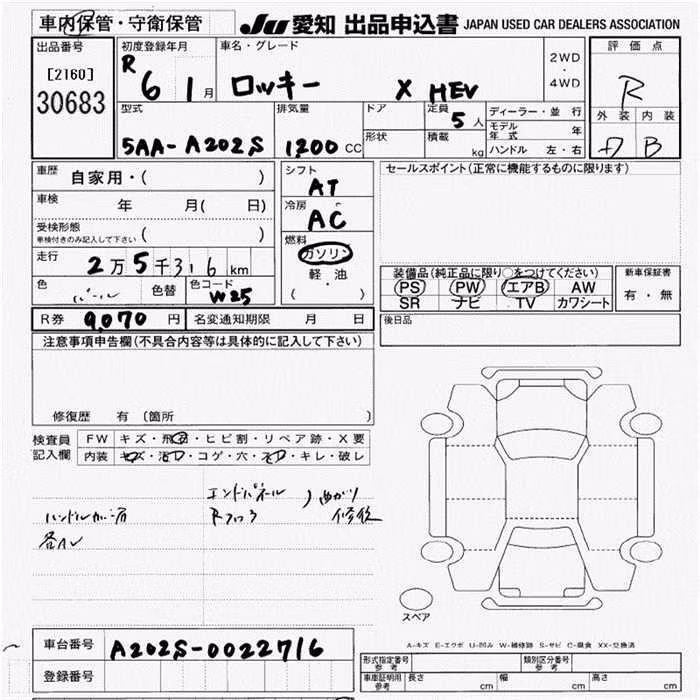 車内保管・守衛保管
JU 愛知 出品申込書 JAPAN USED CAR DEALERS ASSOCIATION
出品番号
[2160]
30683
初度登録年月
R 6 1 月
車名・グレード
ロッキー X HEV
2WD
・
4WD
評価点
R
外装 内装
B
型式
5AA-A202S
排気量
1200 CC
ドア
形状
定員 5 人
積載 kg
ディーラー・並行
モデル年式 年
ハンドル 左・右
車歴 自家用・( )
車検 年 月( 日)
受検形態
車検付きのみ記入して下さい ( )
走行 2万5千316 km
色 パール 色替 色コード W25
シフト AT
冷房 AC
燃料
ガソリン
軽油
( )
セールスポイント(正常に機能するものに限ります)
装備品(純正品に限り○をつけてください)
PS PW エアB AW
SR ナビ TV カワシート
新車保証書
有・無
R券 9,070 円 名変通知期限 月 日
後日品
注意事項申告欄(不具合内容等は具体的に記入して下さい)
修復歴 有 〔箇所 〕
検査員記入欄
FW キズ・飛石・ヒビ割・リペア跡・X要
内装 キズ・汚レ・コゲ・穴・スレ・キレ・破レ
エンドパネル
Rフロア
曲がり
修復
スペア
A-キズ E-エクボ U-凹み W-補修跡 S-サビ C-腐食 XX-交換済
車台番号 A202S-0022716
登録番号
形式指定番号 参考
類別区分番号 参考
車庫証明用 参考 長さ cm 幅 cm 高さ cm